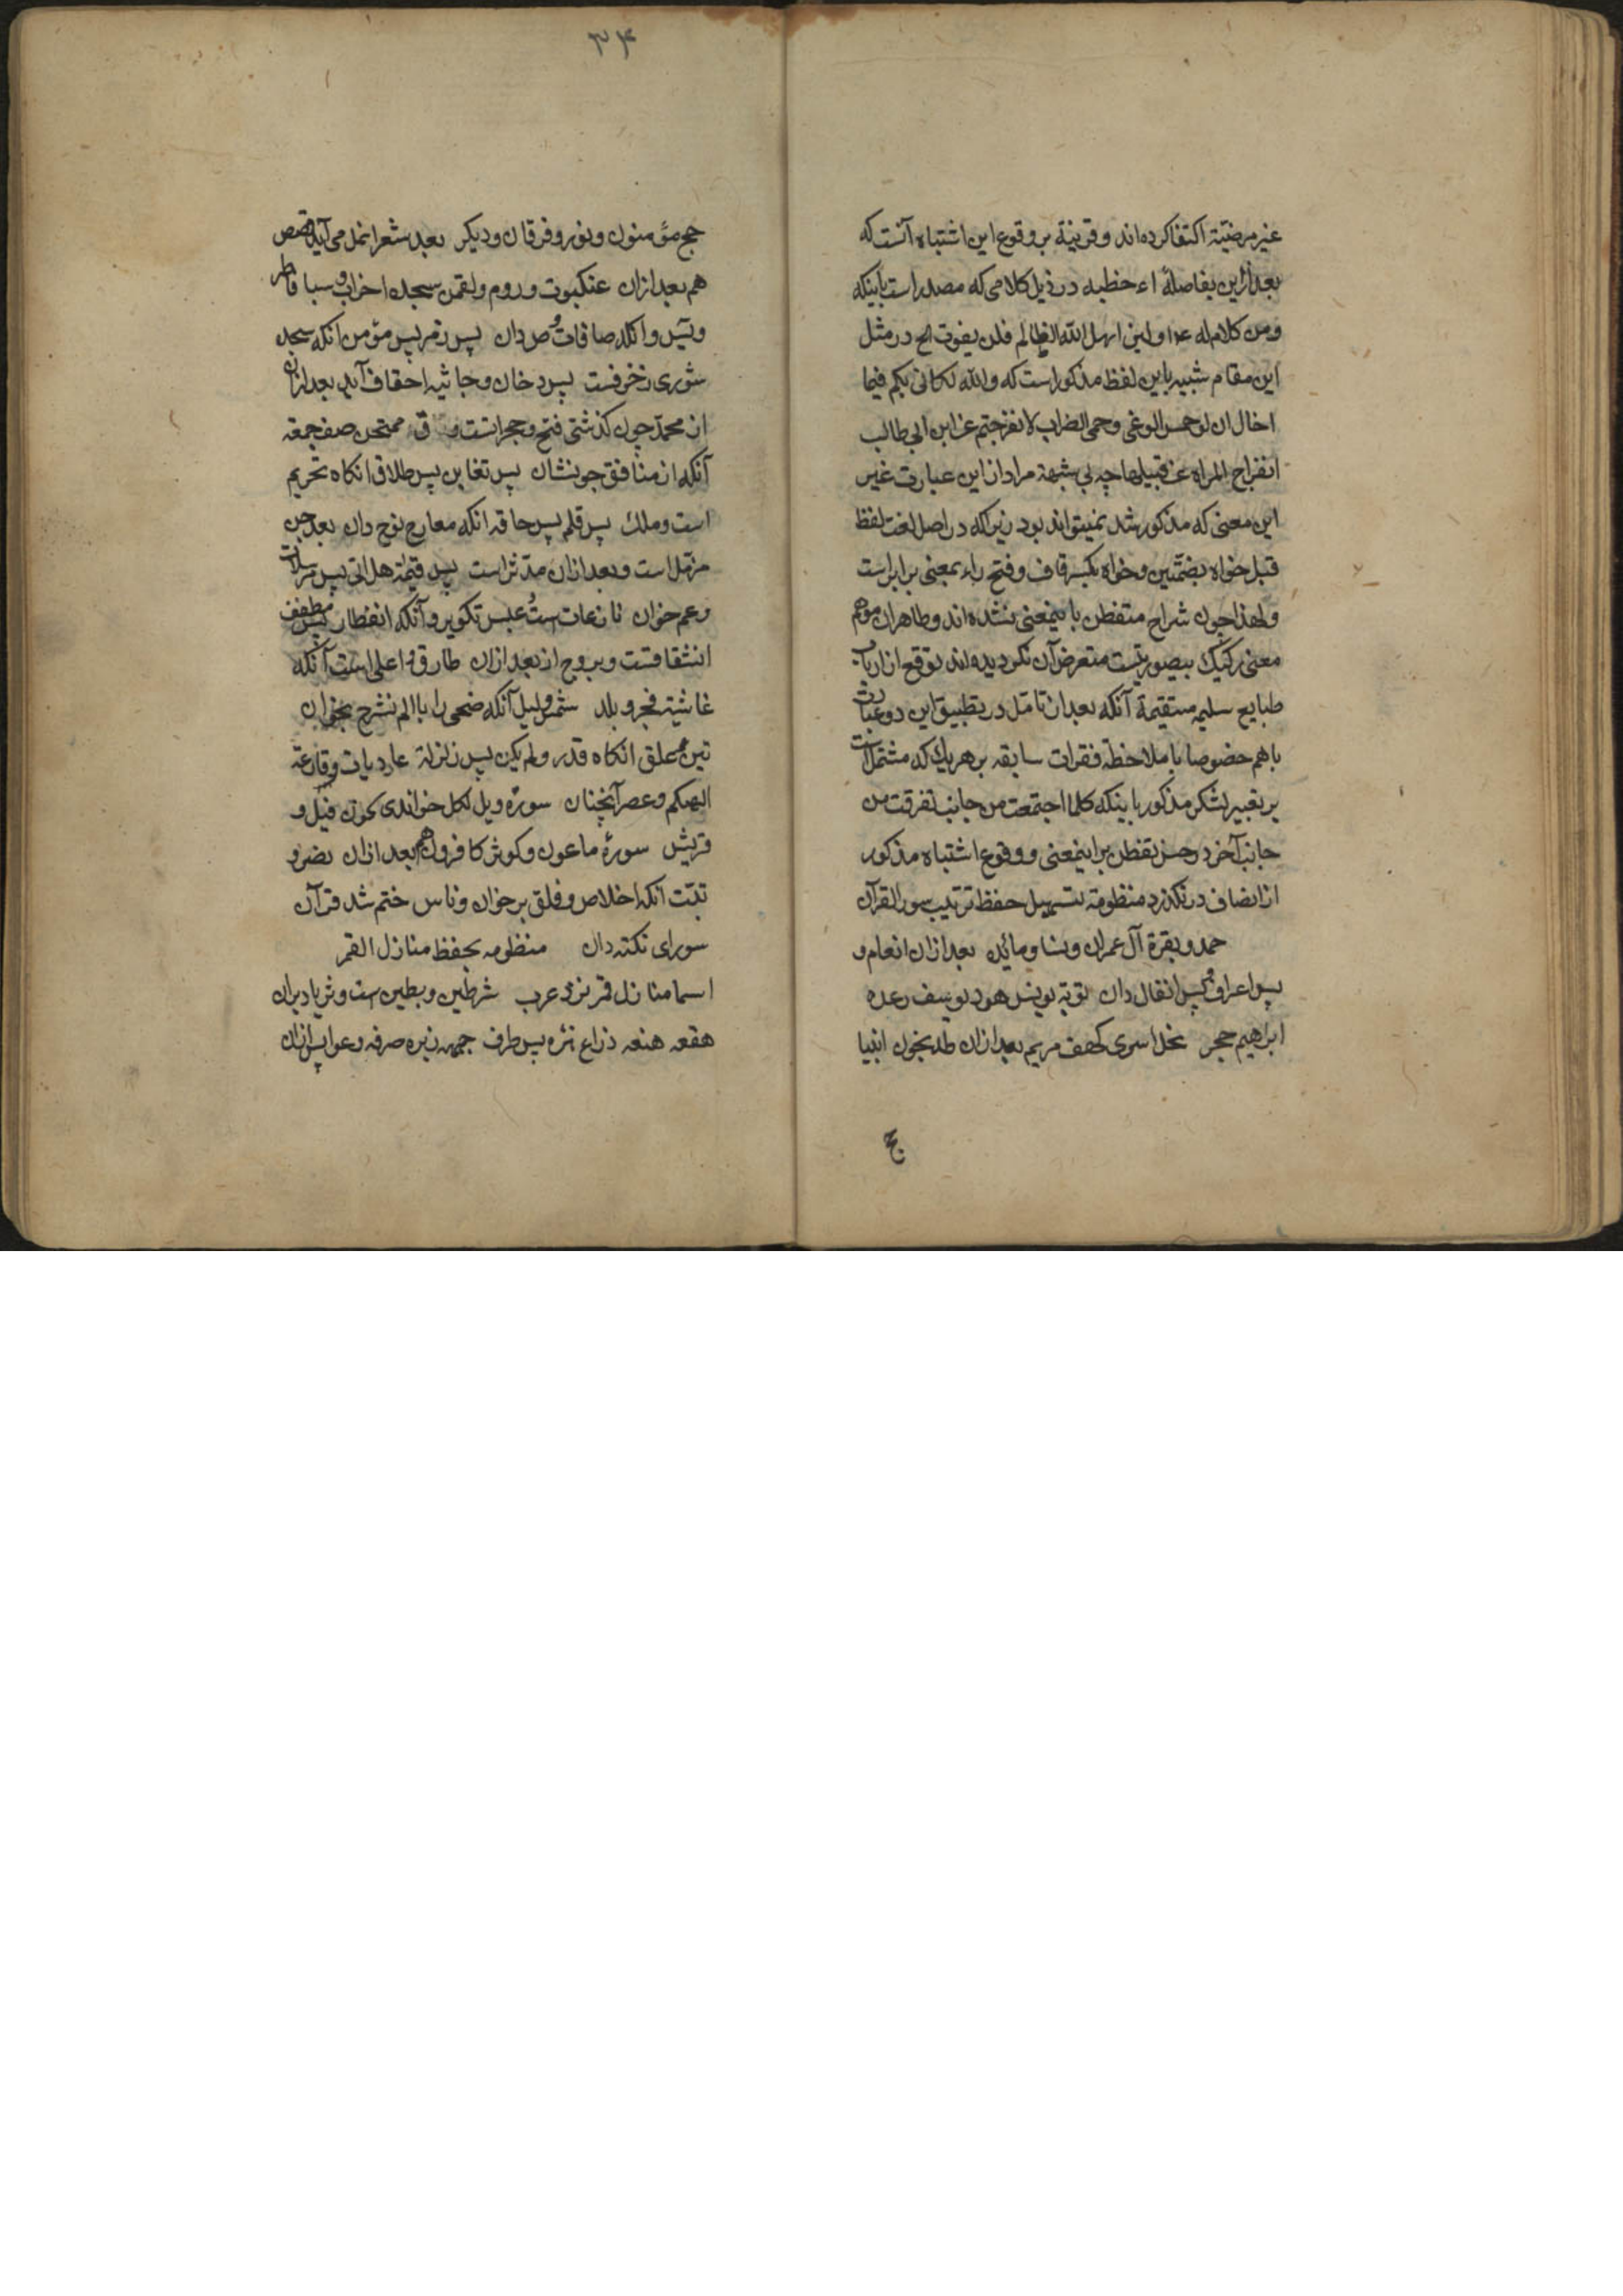 غیر مرضیّة اکتفا کرده‌اند و قرینهٔ بر وقوع این اشتباه آنست که
بعد ازین بفاصلهٔ اء خطبه در ذیل کلامی که مصدر است باینکه
ومن کلام له ع و لئن امهل الله الظالم فلن یفوت الخ در مثل
این مقام شبیه باین لفظ مذکور است که والله لکانی بکم فیما
اخال ان لو حمس الوغی وحمی الضراب لانفرجتم عن ابن ابی طالب
انفراج المراه عن قبلها چه بی شبهة مراد از این عبارت غیر
این معنی که مذکور شد نمیتواند بود زیرا که در اصل لغت لفظ
قبل خواه بضمّتین و خواه بکسر قاف و فتح باء بمعنی برابر است
ولهذا چون شراح متفطن باینمعنی نشده‌اند و ظاهر ان موهم
معنی رکیک بیصورتیست متعرض آن نکردیده‌اند توقع از ارباب
طبایع سلیمه مستقیمة آنکه بعد از تامّل در تطبیق این دو عبارت
باهم خصوصا با ملاحظهٔ فقرات سابقه بر هر یک که مشتمل است
بر تعبیر لشکر مذکور باینکه کلما اجتمعت من جانب تفرقت من
جانب آخر در حسن تفطن بر اینمعنی و وقوع اشتباه مذکور
از انصاف در نکذرد منظومة لتسهیل حفظ ترتیب سور القرآن
حمد و بقرة آل عمران و نسا و مائده بعد ازان انعام و
پس اعراف و پس انفال دان توبه یونس هود یوسف رعد ه
ابراهیم حجر نحل اسری کهف مریم بعد ازان طه بخوان انبیا
ج
۳۴
حج مؤمنون و نور و فرقان و دیکر بعد شعرا نمل می آید قصص
هم بعد ازان عنکبوت و روم و لقمن سجده احزاب و سبا فاطر
و یس و انکه صافات و ص دان پس زمر پس مؤمن انکه سجده
شوری زخرفست پس دخان و جاثیه احقاف آید بعد ازان
از محمد چون کذشتی فتح و حجراتست و ق ممتحن صف جمعه
آنکه از منافق جو نشان پس تغابن پس طلاق انکاه تحریم
است و ملک پس قلم پس حاقه انکه معارج نوح دان بعد جن
مزّمّل است و بعد ازان مدّثر است پس قیمة هل اتی پس مرسلات
و عم خوان نازعات است و عبس تکویر و آنکه انفطار پس مطفف
انشقاقست و بروج از بعد ازان طارق و اعلی است آنکه
غاشیه فجر و بلد شمس و لیل آنکه ضحی را با الم نشرح بخوان
تین و علق انکاه قدر و لم یکن پس زلزلة عادیات و قارعه
الهیکم و عصر آنچنان سورهٔ ویل لکل خواندی بخوان فیل و
قریش سورهٔ ماعون و کوثر کافرون هم بعد ازان نصر و
تبّت انکه اخلاص و فلق بر خوان و ناس ختم شد قرآن
سورای نکته دان منظومه بحفظ منازل القمر
اسما منازل قمر نزد عرب شرطین و بطین است و ثریا دبران
هقعه هنعه ذراع نثره پس طرف جبهه زبره صرفه و عوا پس ازان